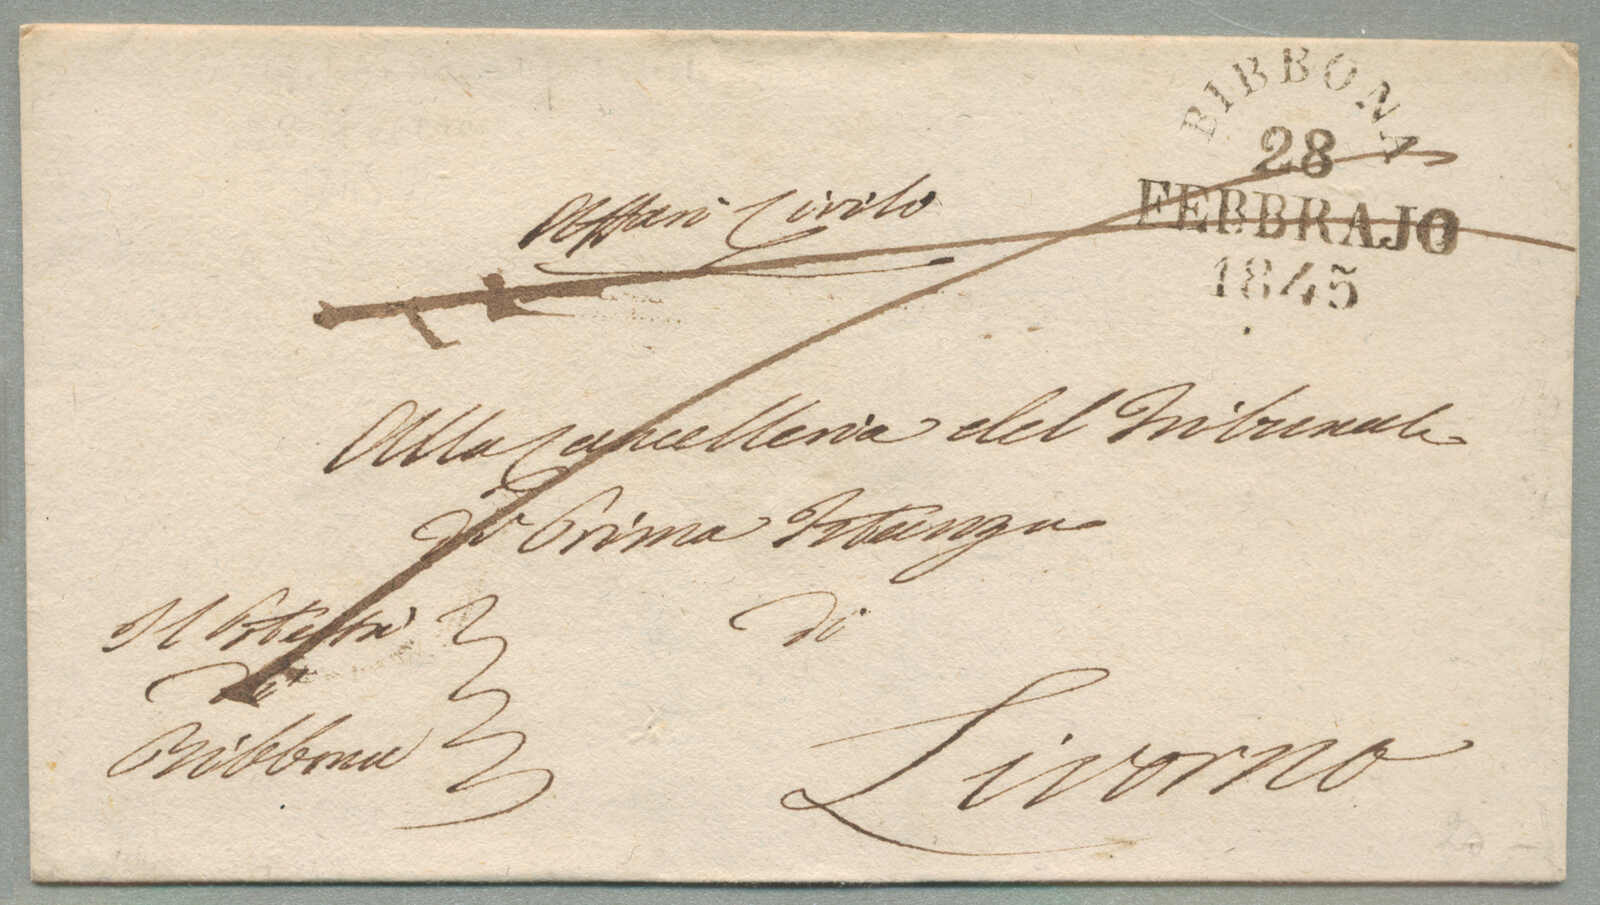 BIBBONA
28
FEBBRAJO
1845
Affari Civile
Alla Cancelleria del Tribunale
di Prima Istanza
di
Livorno
Il Potestà
di
Bibbona